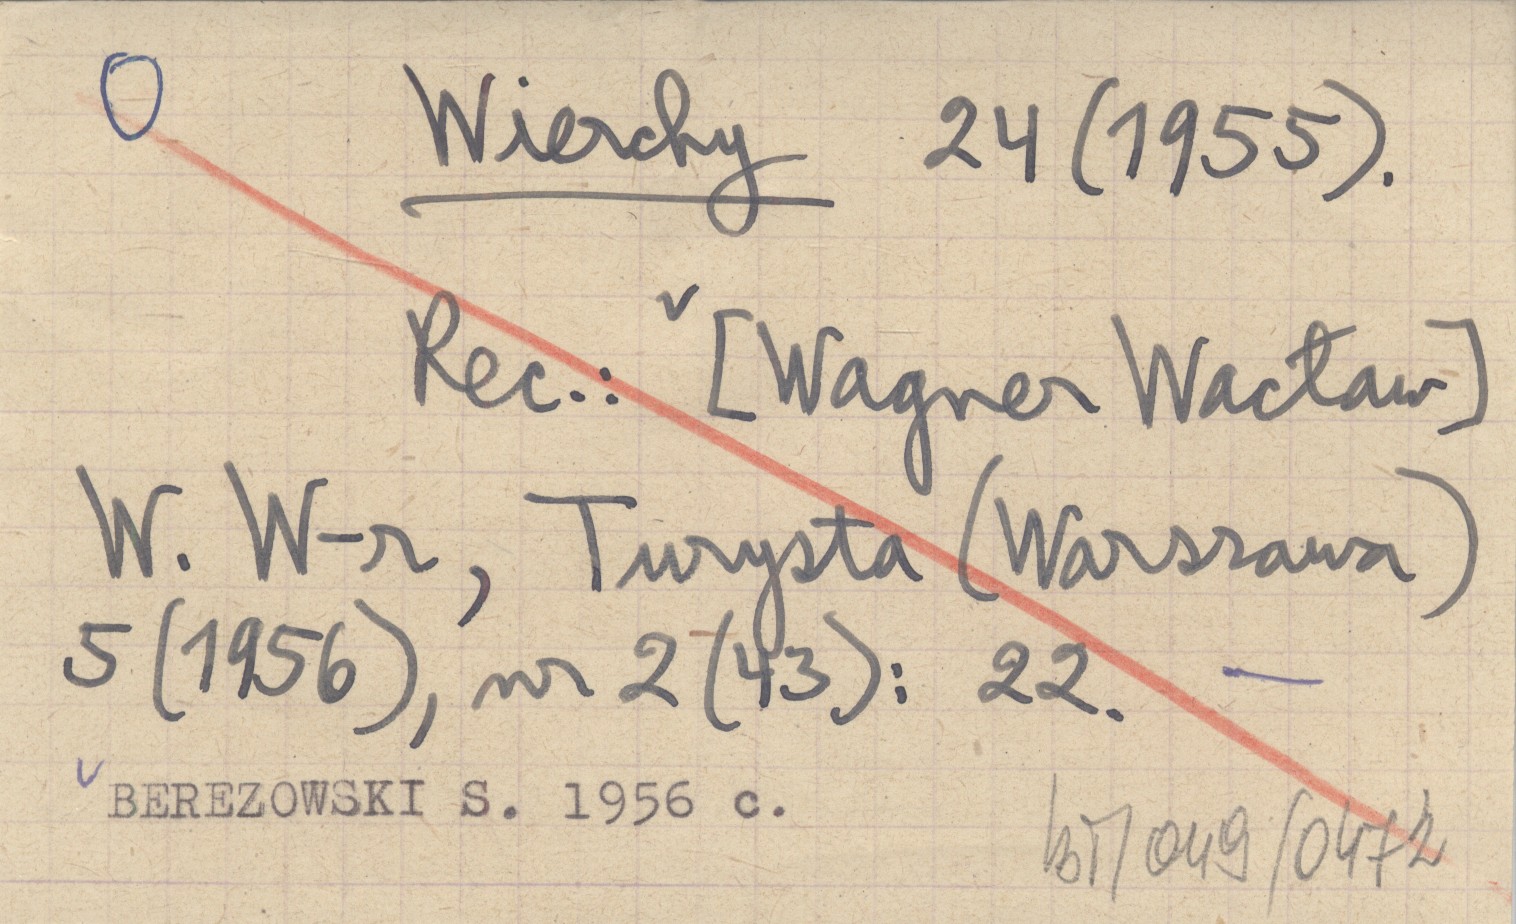 O Wierchy 24 (1955).
Rec.: v [Wagner Wacław]
W. W-r, Turysta (Warszawa)
5 (1956), nr 2 (43): 22. —
v BEREZOWSKI S. 1956 c.
/049/0472